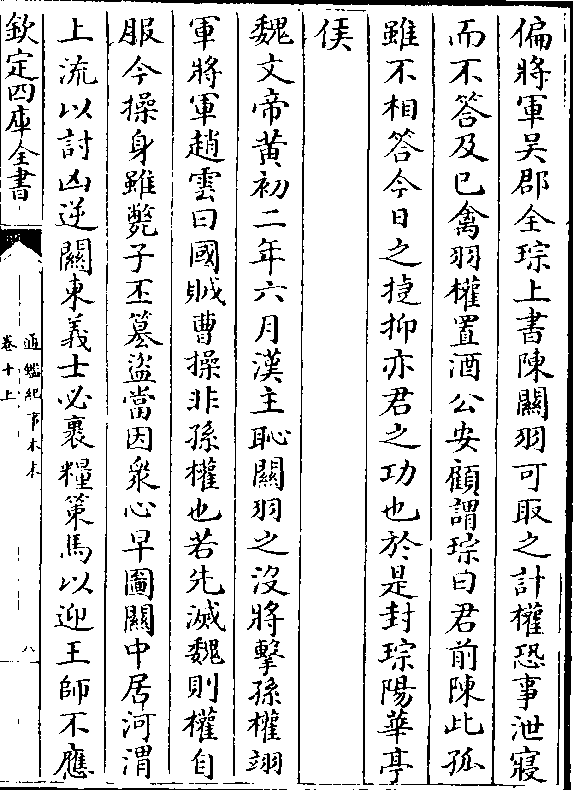 偏將軍吴郡全琮上書陳關羽可取之計權恐事泄寢
而不答及已禽羽權置酒公安顧謂琮曰君前陳此孤
雖不相答今日之捷抑亦君之功也於是封琮陽華亭
侯
魏文帝黄初二年六月漢主恥關羽之沒將擊孫權翊
軍將軍趙雲曰國賊曹操非孫權也若先滅魏則權自
服今操身雖斃子丕簒盗當因衆心早圖關中居河渭
上流以討凶逆關東義士必褁糧策馬以迎王師不應
欽定四庫全書
通鑑紀事本末
卷十上
八